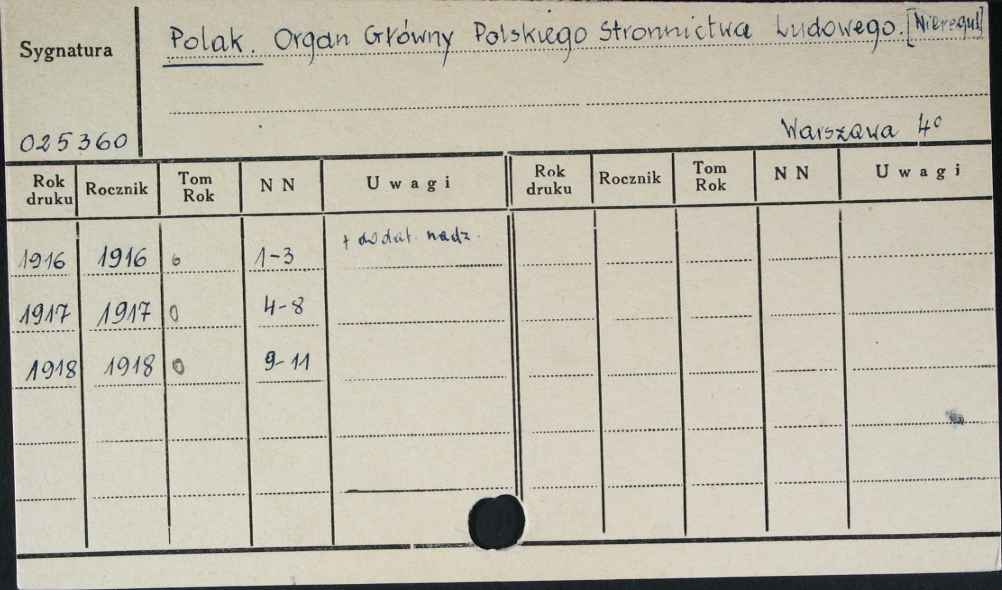 Sygnatura
Polak. Organ Główny Polskiego Stronnictwa Ludowego. [Nieregul]
025360
Warszawa 4°
Rok druku Rocznik Tom Rok NN Uwagi Rok druku Rocznik Tom Rok NN Uwagi
1916 1916 0 1-3 + dodat. nadz.
1917 1917 0 4-8
1918 1918 0 9-11